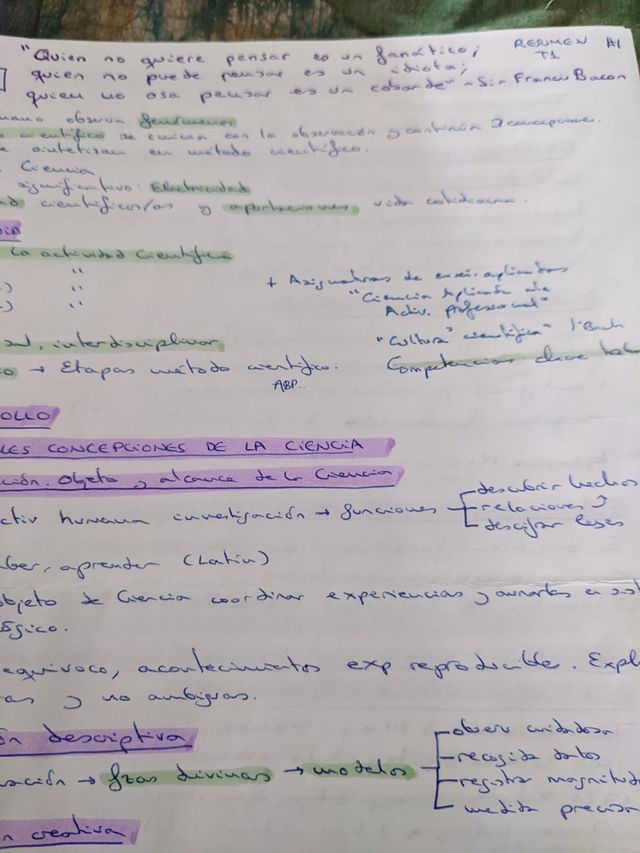 "Quien no quiere pensar es un fanático;
RESUMEN
T1
quien no puede pensar es un idiota;
quien no osa pensar es un cobarde" - Sir Francis Bacon
observa fenómenos
científico se inicia con la observación y continúa
sintetizan en método científico.
Ciencia
significativo: Electricidad
científicos/as y aportaciones vida cotidiana.
la actividad científica
"
"
+ Asignaturas de
"Ciencia Aplicada
Activ. profesional"
interdisciplinar
"Cultura científica" 1ºBach
→ Etapas método científico.
Competencias clave
ABP...
OLLO
LES CONCEPCIONES DE LA CIENCIA
ción. Objeto y alcance de la Ciencia
activ humana investigación → funciones
descubrir hechos
relaciones
descifrar leyes
ber, aprender (Latín)
objeto de Ciencia coordinar experiencias y
lógico.
equívoco, acontecimientos exp reproducible. Expl
y no ambiguas.
ón descriptiva
observ cuidadosa
ración → fzas divinas → modelos
recogida datos
registra magnitud
medida precisa
n creativa